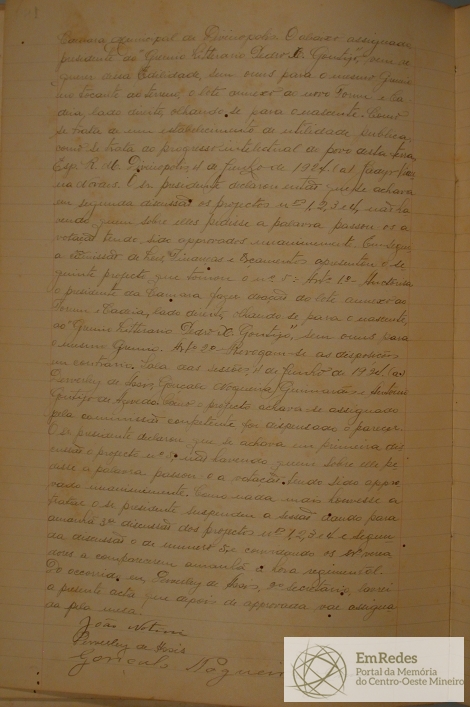 Camara Municipal de Divinopolis. O abaixo assignado,
presidente do "Gremio Litterario Pedro X. Gontijo", vem re
querer a essa Edilidade, sem onus para o mesmo Gremio
no tocante ao terreno, o lote annexo ao novo Forum e Ca
deia, lado direito, olhando se para o nascente. Como
se trata de um estabelecimento de utilidade publica,
como se trata do progresso intellectual do povo desta terra,
Esp. R. M. Divinopolis, de Junho de 1924.
O sr. presidente declarou então que se achava
em segunda discussão os projectos nº 1, 2, 3 e 4, não ha
vendo quem sobre elles pedisse a palavra passou os a
votação tendo sido approvados unanimemente. Em seguida
a comissão de Leis, Finanças e Orçamentos apresentou o se
guinte projecto que tomou o nº 5: Artº 1º Autoriza
o presidente da Camara fazer doação do lote annexo ao
Forum e Cadeia, lado direito, olhando se para o nascente,
ao "Gremio Litterario Pedro X. Gontijo", sem onus para
o mesmo Gremio. Artº 2º Revogam-se as disposições
em contrario. Sala das sessões, de Junho de 1924. (as)
Gonçalo Nogueira, Guimarães e Antonio
Gontijo de Azevedo. Como o projecto achava-se assignado
pela commissão competente foi dispensado o parecer.
O sr. presidente declarou que se achava em primeira dis
cussão o projecto nº 5, não havendo quem sobre elle pe
disse a palavra passou o a votação tendo sido appro
vado unanimemente. Como nada mais houvesse a
tratar o sr. presidente suspendeu a sessão dando para
amanhã 3ª discussão dos projectos nº 1, 2, 3 e 4 e segun
da discussão o de numero 5 convidando os srs. verea
dores a comparecerem amanhã á hora regimental.
Do occorrido, eu, 2º secretario, lavrei
a presente acta que depois de approvada vae assigna
da pela mesa.
João
Gonçalo Nogueira
EmRedes
Portal da Memória
do Centro-Oeste Mineiro